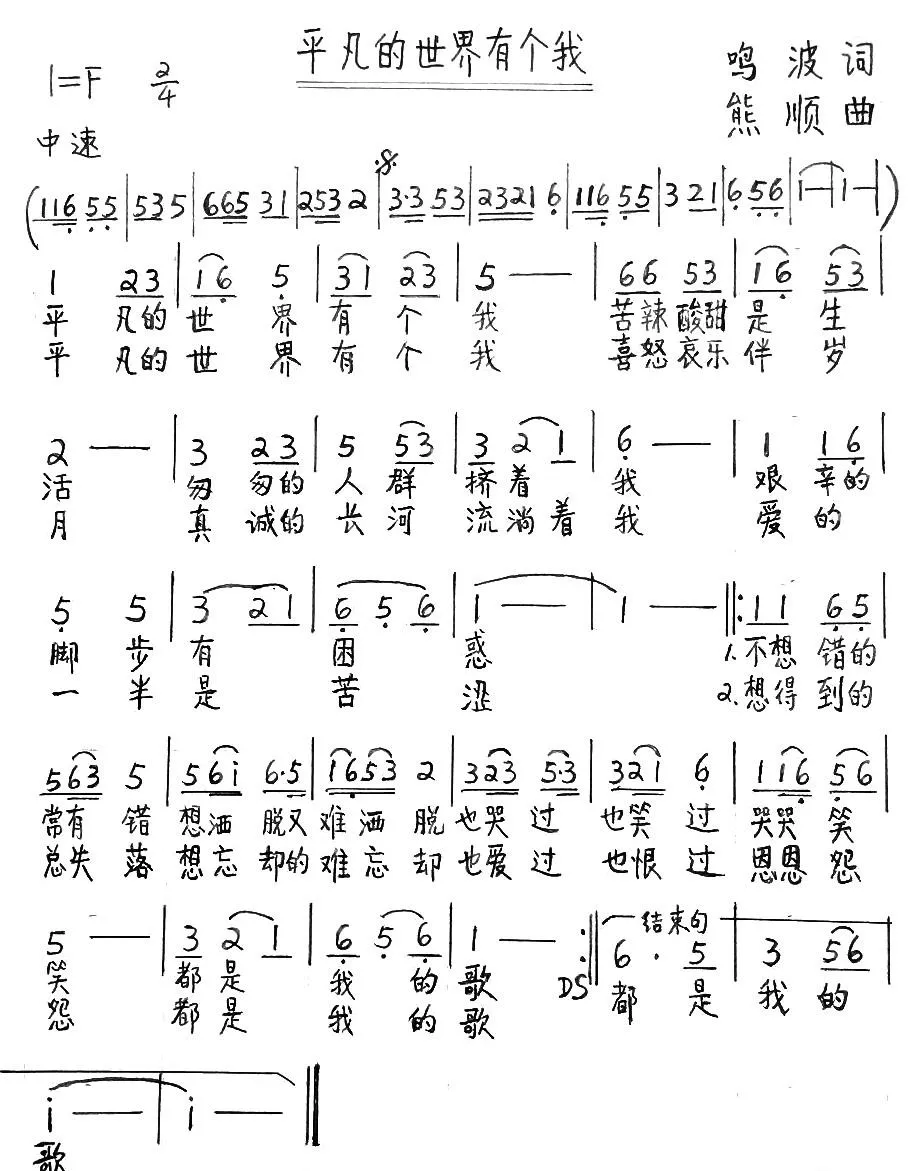 平凡的世界有个我
1=F 2/4 鸣波词
中速 熊顺曲
(116 55|535|665 31|253 2|3·3 53|2321 6|116 55|3 21|6 56|1—|1—|)
1 23|16 5|31 23|5 —|66 53|16 53|
平 凡的 世 界 有 个 我 苦辣 酸甜 是 生
平 凡的 世 界 有 个 我 喜怒 哀乐 伴 岁
2 —|3 23|5 53|3 2 1|6 —|1 16|
活 匆 匆的 人 群 挤 着 我 艰 辛的
月 真 诚的 长 河 流 淌 着 我 爱 的
5 5|3 21|6 5 6|1 —|1 —‖:11 65|
脚 步 有 困 惑 1.不想 错的
一 半 是 苦 涩 2.想得 到的
563 5|561 6·5|1653 2|323 5·3|321 6|116 56|
常有 错 想洒 脱又 难洒 脱 也哭 过 也笑 过 哭哭 笑
总失 落 想忘 却的 难忘 却 也爱 过 也恨 过 恩恩 怨
结束句
5 —|3 2 1|6 5 6|1 — :‖6· 5|3 56|
笑 都 是 我 的 歌 DS 都 是 我 的
怨 都 是 我 的 歌
1 —|1 —‖
歌